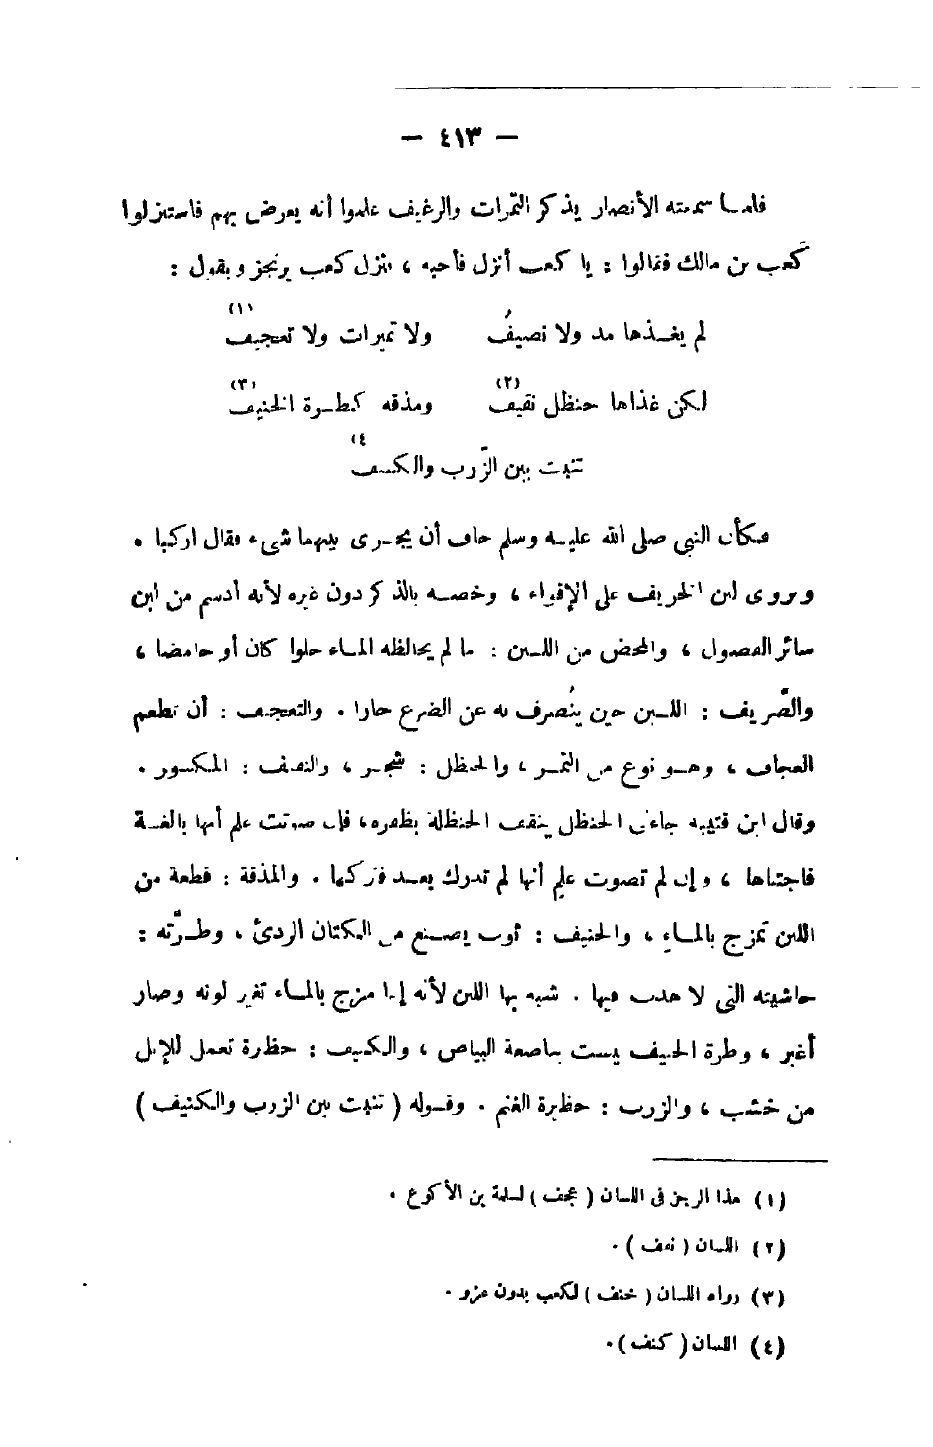 — ٤١٣ —
فلمـا سمعته الأنصار يذكر التمرات والرغيف علموا أنه يعرض بهم فاستنزلوا
كعب بن مالك فقالوا : يا كعب أنزل فأجبه ، فنزل كعب يرتجز ويقول :
لم يغـذها مد ولا نصيفُ ولا تميرات ولا تعجيف (١)
لكن غذاها حنظل نقيف (٢) ومذقه كطـرة الخنيف (٣)
تنبت بين الزَّرب والكنيف (٤
فكأن النبي صلى الله عليـه وسلم خاف أن يجـرى بينهما شىء فقال اركبا .
ويروى لبن الخريف على الإقواء ، وخصـه بالذكر دون غيره لأنه أدسم من لبن
سائر الفصول ، والمحض من اللـبن : ما لم يخالطه المـاء حلوا كان أو حامضا ،
والصَّريف : اللـبن حين يُنصرف به عن الضرع حارا . والتعجيف : أن تطعم
العجاف ، وهـو نوع من التمـر ، والحنظل : شجـر ، والنقف : المكسور .
وقال ابن قتيبه جانى الحنظل ينقف الحنظلة بظفره، فإن صوتت علم أنها بالغـة
فاجتناها ، وإن لم تصوت علم أنها لم تدرك بعـد فتركها . والمذقة : قطعة من
اللبن تمزج بالمـاء ، والخنيف : ثوب يصـنع من الكتان الردئ ، وطـرَّته :
حاشيته التى لا هدب فيها . شبه بها اللبن لأنه إذا مزج بالمـاء تغير لونه وصار
أغبر ، وطرة الخنيف ليست بناصعة البياض ، والكنيف : حظرة تعمل للإبل
من خشب ، والزرب : حظيرة الغنم . وقـوله ( تنبت بين الزرب والكنيف )
(١) هذا الرجز فى اللسان ( عجف ) لسلمة بن الأكوع .
(٢) اللسان ( نقف ) .
(٣) رواه اللسان ( خنف ) لكعب بدون عزو .
(٤) اللسان ( كنف ) .